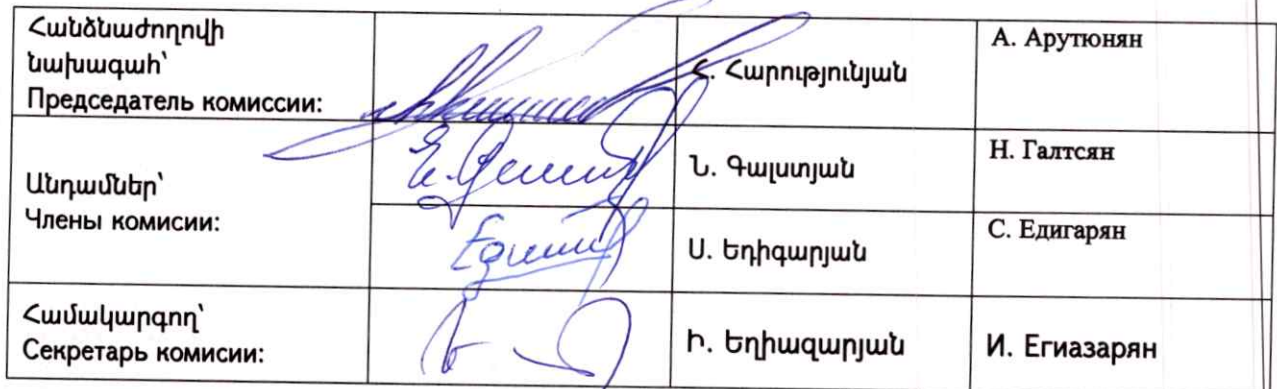 Հանձնաժողովի
նախագահ՝
Председатель комиссии:
Հ. Հարությունյան
А. Арутюнян
Անդամներ՝
Члены комисии:
Ն. Գալստյան
Н. Галтсян
Ս. Եդիգարյան
С. Едигарян
Համակարգող՝
Секретарь комисии:
Ի. Եղիազարյան
И. Егиазарян